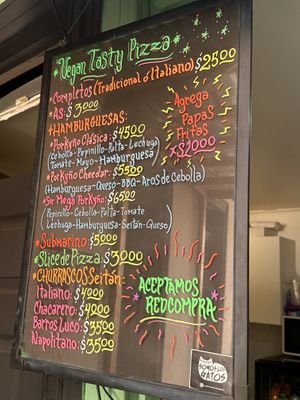 Vegan Tasty Pizza
Completos (Tradicional ó Italiano) $2500
As: $3000
HAMBURGUESAS:
PorKyño Clásica: $4500
(Cebolla-Pepinillo-Palta-Lechuga
Tomate-Mayo-Hamburguesa)
PorKyño Cheedar: $5500
(Hamburguesa-Queso-BBQ-Aros de Cebolla)
Sir Mega PorKyño: $6500
(Pepinillo-Cebolla-Palta-Tomate
Lechuga-Hamburguesa-Seitán-Queso)
Submarino: $5000
Slice de Pizza: $3000
CHURRASCOS Seitán:
Italiano: $4000
Chacarero: $4000
Barros Luco: $3500
Napolitano: $3500
Agrega
Papas
Fritas
X$2000
ACEPTAMOS
REDCOMPRA
SOMOS LOS
GATOS